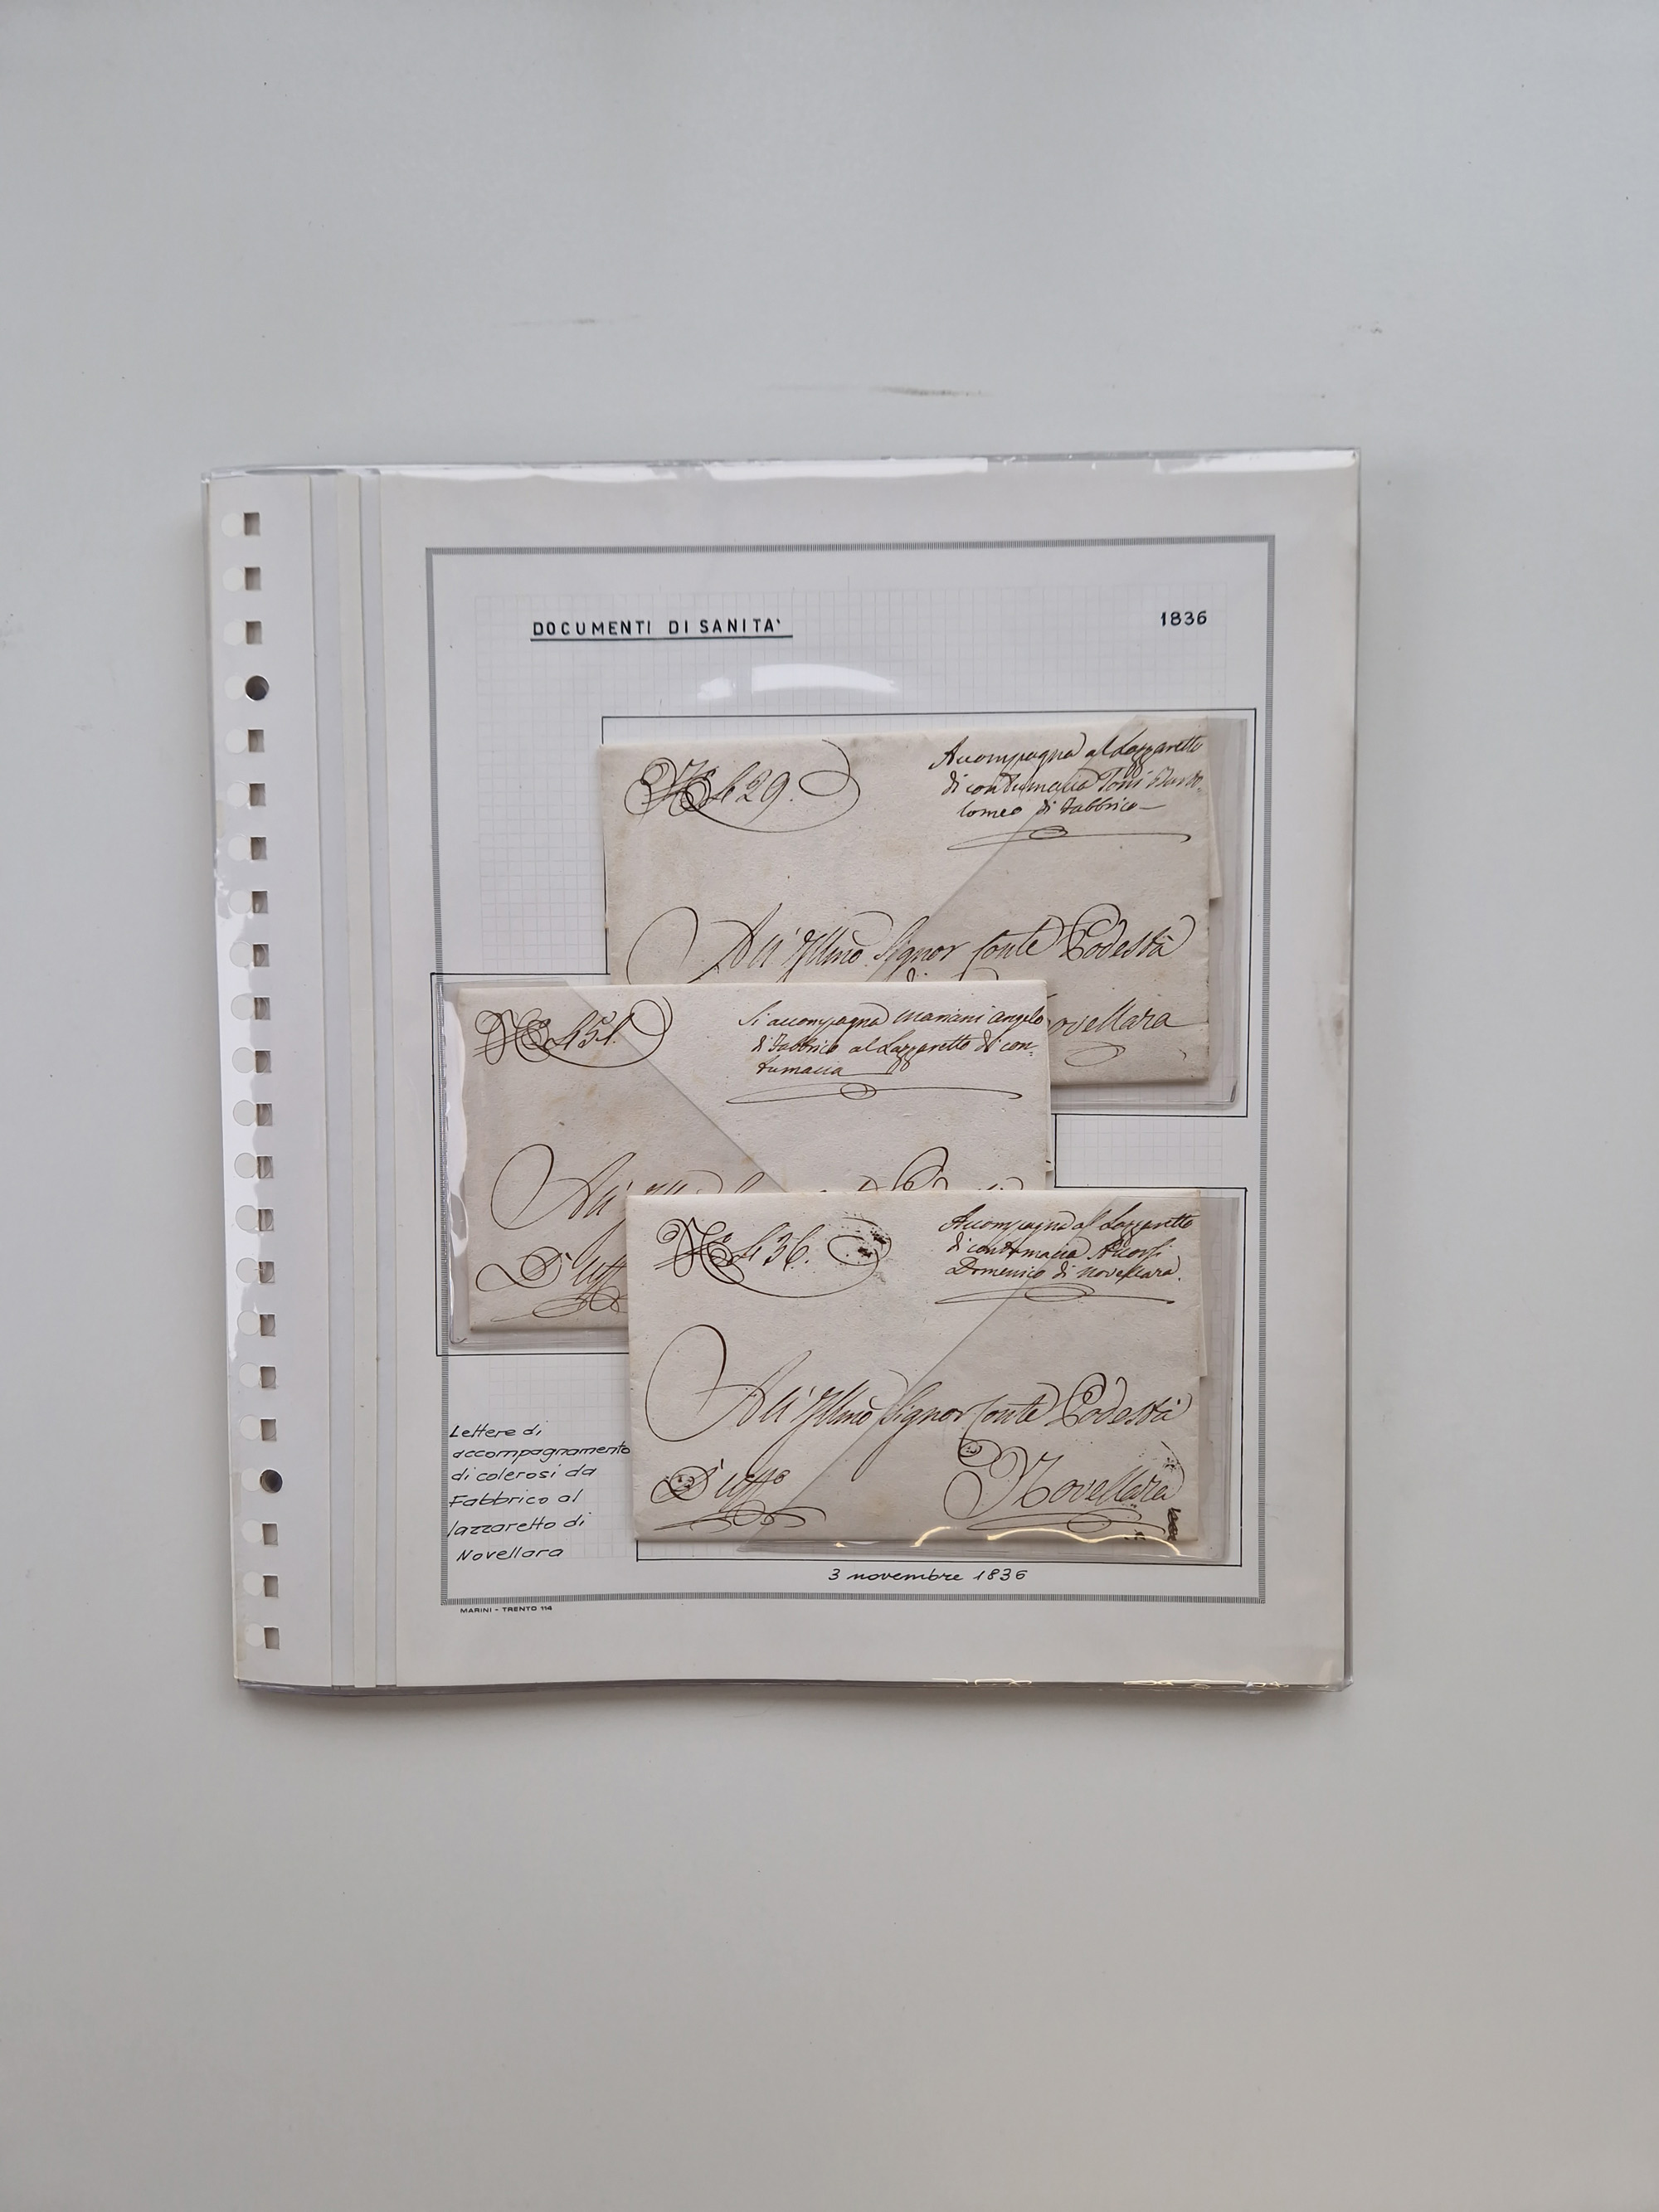 DOCUMENTI DI SANITA'
1836
N° 429.
Accompagna al Lazzaretto
di contumacia Toni Barto-
lomeo di Fabbrico
All' Illmo Signor Conte Podestà
ovellara
N° 451.
Si accompagna Mariani Angelo
di Fabbrico al Lazzaretto di con-
tumacia
All'
D'Uff
N° 436.
Accompagna al Lazzaretto
di contumacia
Domenico di Novellara.
All' Illmo Signor Conte Podestà
D'Uffo
Novellara
Lettere di
accompagnamento
di colerosi da
Fabbrico al
lazzaretto di
Novellara
3 novembre 1836
MARINI - TRENTO 114